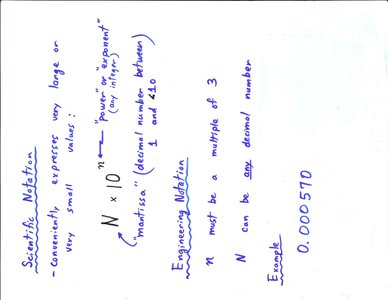 Scientific Notation
- conveniently expresses very large or
very small values:
N × 10ⁿ
"power" or "exponent"
(any integer)
"mantissa" (decimal number between
1 and <10
Engineering Notation
n must be a multiple of 3
N can be any decimal number
Example
0.000570